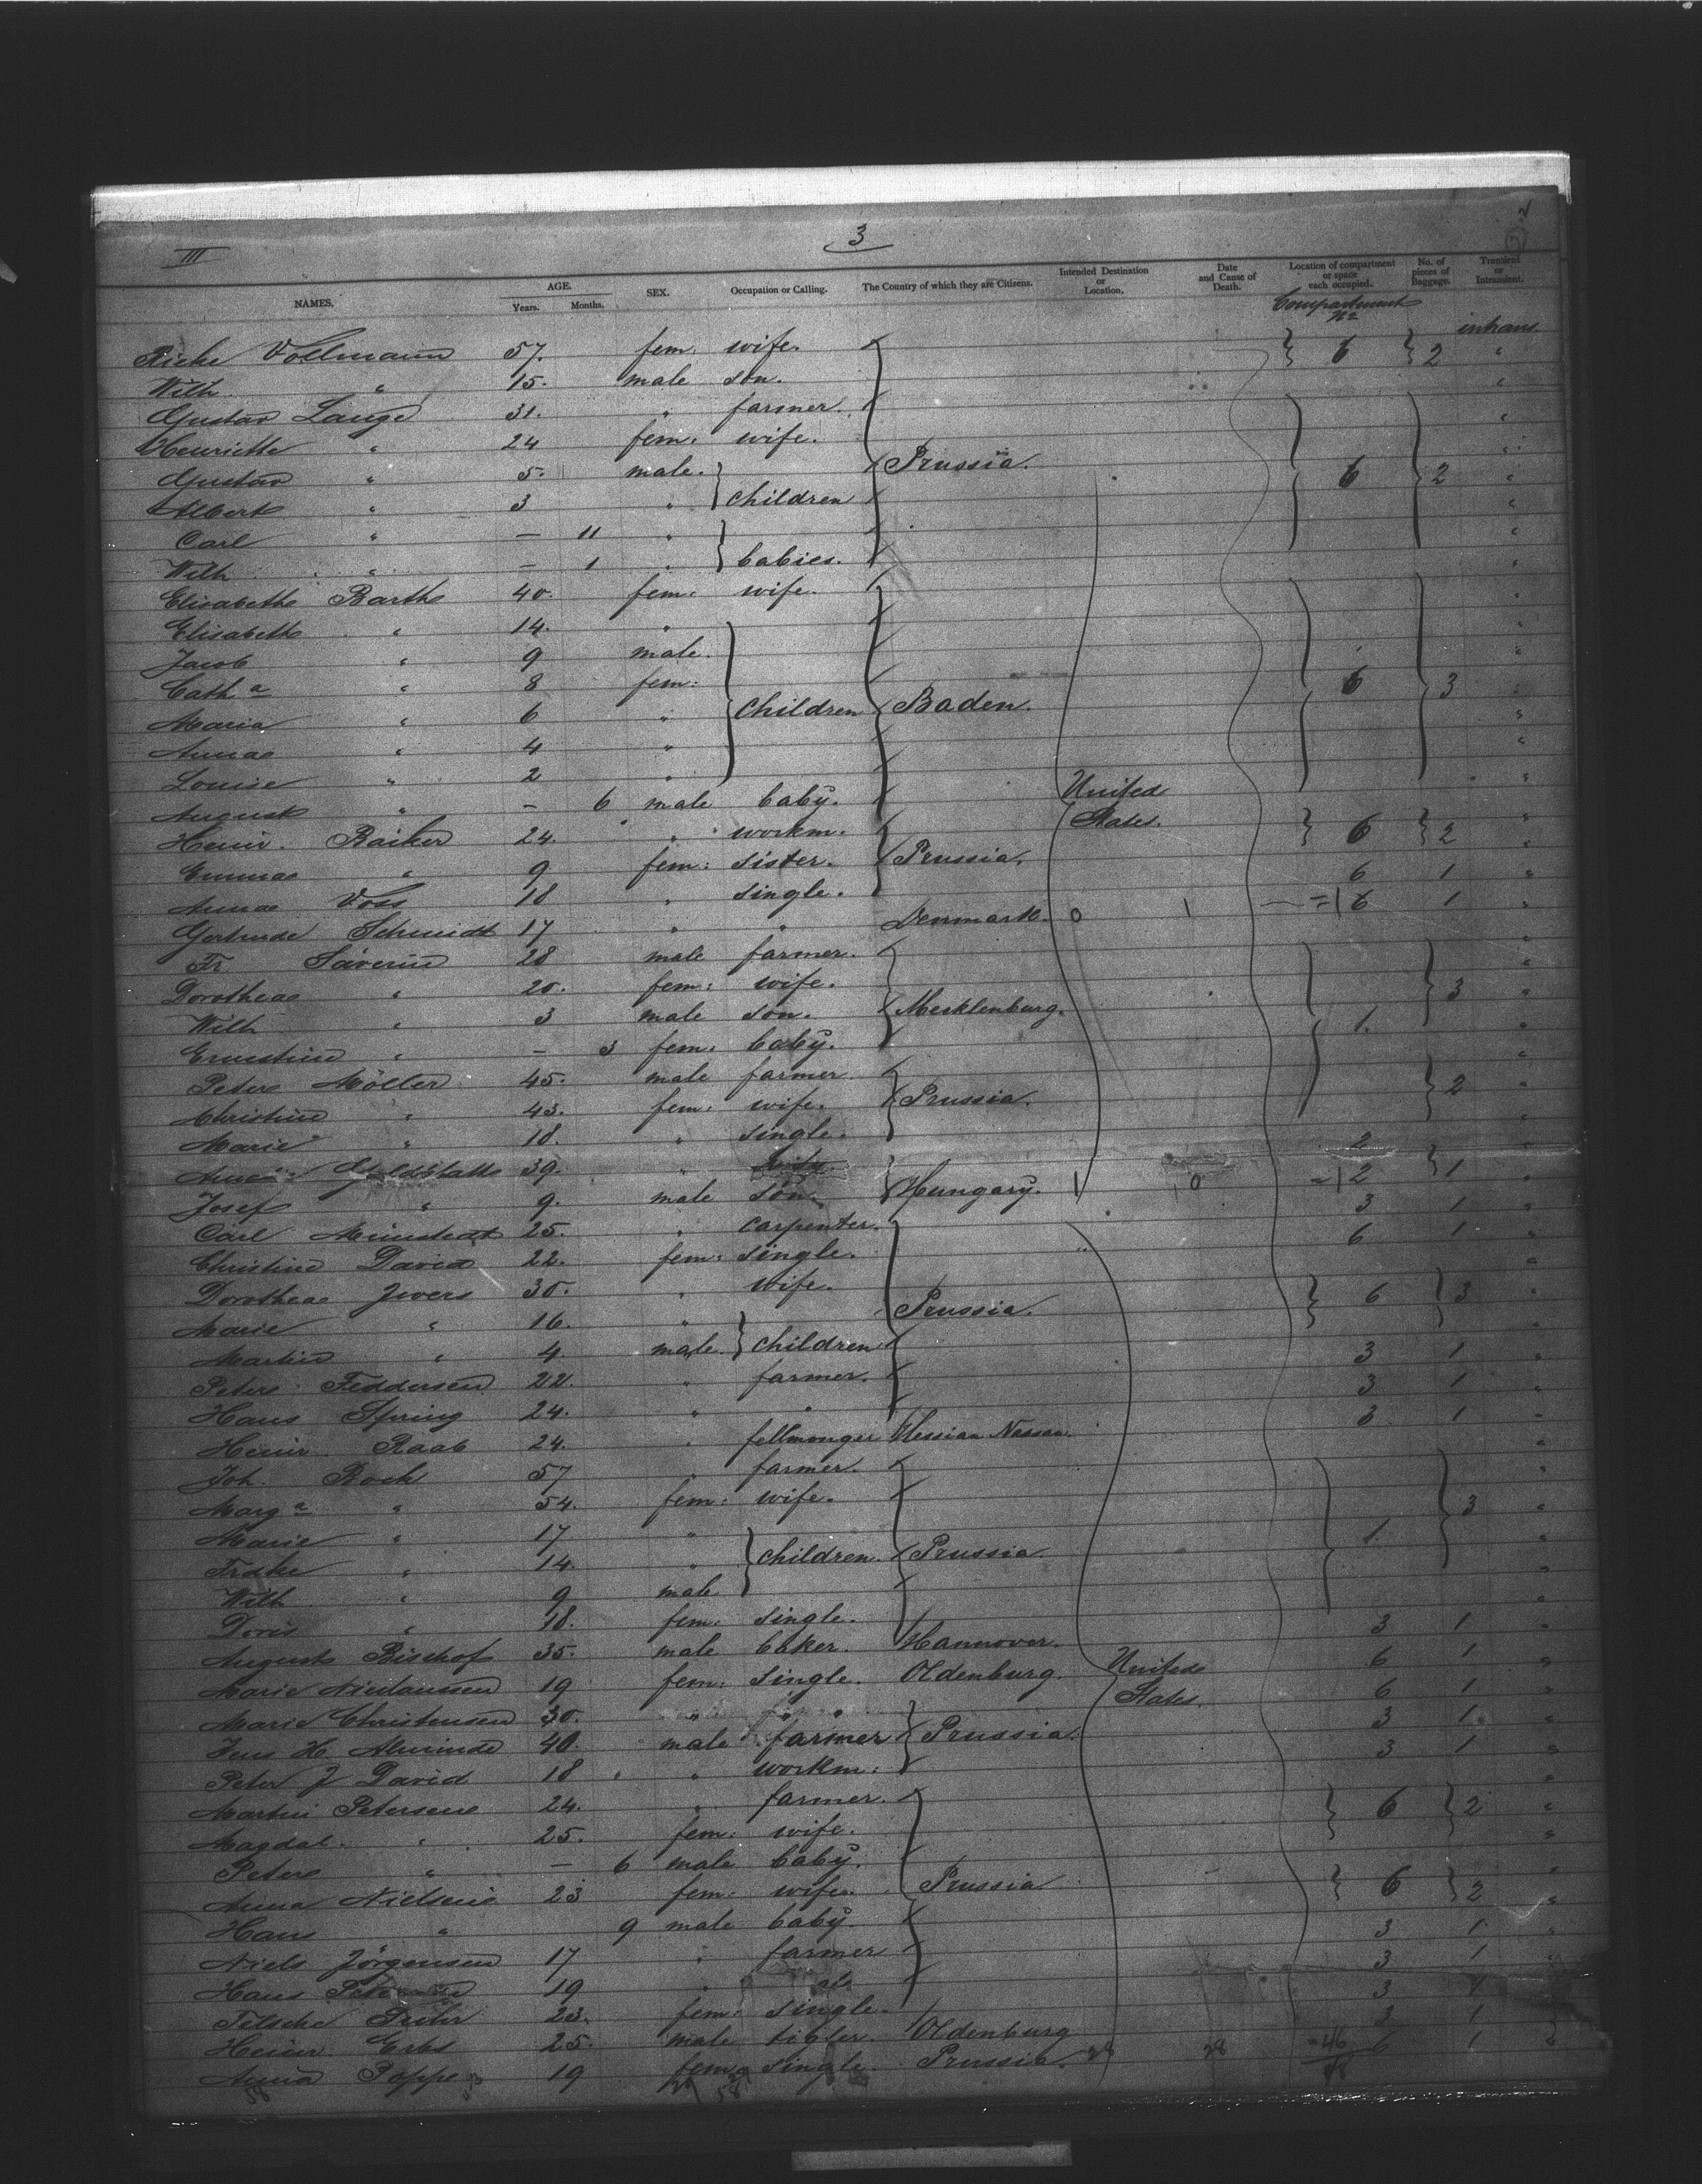 III
3
NAMES. AGE. Years. Months. SEX. Occupation or Calling. The Country of which they are Citizens. Intended Destination or Location. Date and Cause of Death. Location of compartment or space each occupied. No. of pieces of Baggage. Transient or Intransient.
Compartment No intrans
Rieke Vollmann 57. fem: wife. 6 2 "
Wilh " 15. male son. "
Gustav Lange 31. " farmer. "
Henriette " 24 fem: wife. "
Gustav " 5. male. Prussia. 6 2 "
Albert " 3 " children "
Carl " — 11 " "
Wilh " — 1 " babies. "
Elisabeth Barth 40. fem: wife. "
Elisabeth " 14. " "
Jacob " 9 male. "
Cath a " 8 fem: 6 3 "
Maria " 6 " children Baden. "
Anna " 4 " "
Louise " 2 " "
August " — 6 male baby. United "
Heinr. Raiker 24. " workm. States. 6 2 "
Emma " 9 fem: sister. Prussia. "
Anna Voss 18 " single. 6 1 "
Gertrude Schmidt 17 " " Denmark. 0 1 =1 6 1 "
Fr Säverin 28 male farmer. "
Dorothea " 20. fem: wife. 3 "
Wilh " 3 male son. Mecklenburg. 1. "
Ernestine " — 3 fem: baby. "
Peter Möller 45. male farmer. 2 "
Christine " 43. fem: wife. Prussia. "
Marie " 18. " single. "
Anna 39. " 2 1 "
Josef " 9. male son. Hungary. 1 0 =12 "
Carl Meinstedt 25. " carpenter. 3 1 "
Christine David 22. fem: single. 6 1 "
Dorothea Jwers 30. " wife. 6 3 "
Marie " 16. " Prussia. "
Martin " 4. male. children "
Peter Feddersen 22. " farmer. 3 1 "
Hans Spring 24. " " 3 1 "
Heinr Raab 24. " fellmonger Hessian Nassau. 3 1 "
Joh. Bock 57 " farmer. "
Marg a " 54. fem: wife. 3 "
Marie " 17 " 1. "
Fridke " 14. " children. Prussia. "
Wilh " 9 male "
Doris " 18. fem: single. "
August Bischof 35. male baker. Hannover. 3 1 "
Marie Nicolaussen 19 fem: single. Oldenburg. United 6 1 "
Marie Christensen 30. " " States. 6 1 "
Jens H. Alminde 40. male farmer Prussia. 3 1 "
Peter J David 18 " workm: 3 1 "
Martin Petersen 24. " farmer. 6 2 "
Magdal. " 25. fem: wife. "
Peter " — 6 male baby. "
Anna Nielsen 23 fem: wife. Prussia 6 2 "
Hans " 9 male baby. "
Niels Jörgensen 17 " farmer 3 1 "
Hans 19 " 3 1 "
Telsche 23. fem: single. 3 1
Heinr Erbs 25. male tigler. Oldenburg 3 1
Anna Poppe 19 fem: single. Prussia. 28 28 =46 6 1 "
58